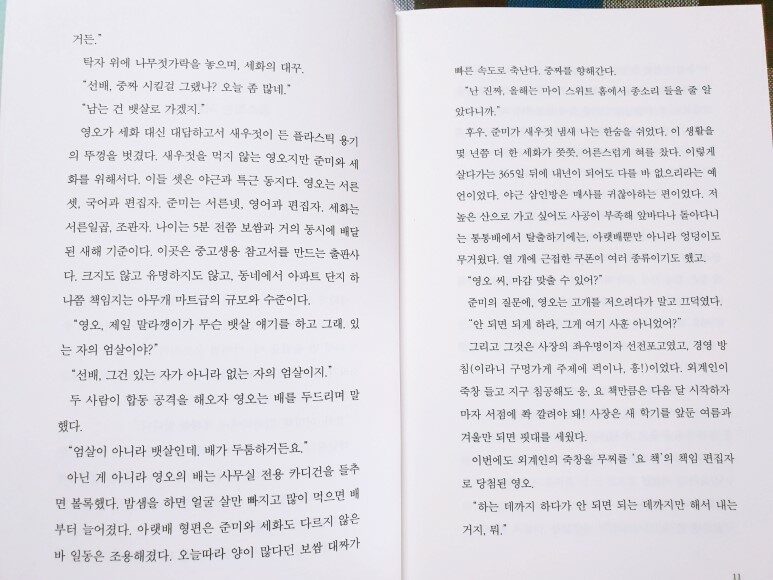 거든.”
탁자 위에 나무젓가락을 놓으며, 세화의 대꾸.
“선배, 중짜 시킬걸 그랬나? 오늘 좀 많네.”
“남는 건 뱃살로 가겠지.”
영오가 세화 대신 대답하고서 새우젓이 든 플라스틱 용기
의 뚜껑을 벗겼다. 새우젓을 먹지 않는 영오지만 준미와 세
화를 위해서다. 이들 셋은 야근과 특근 동지다. 영오는 서른
셋, 국어과 편집자. 준미는 서른넷, 영어과 편집자. 세화는
서른일곱, 조판자. 나이는 5분 전쯤 보쌈과 거의 동시에 배달
된 새해 기준이다. 이곳은 중고생용 참고서를 만드는 출판사
다. 크지도 않고 유명하지도 않고, 동네에서 아파트 단지 하
나쯤 책임지는 아무개 마트급의 규모와 수준이다.
“영오, 제일 말라깽이가 무슨 뱃살 얘기를 하고 그래. 있
는 자의 엄살이야?”
“선배, 그건 있는 자가 아니라 없는 자의 엄살이지.”
두 사람이 합동 공격을 해오자 영오는 배를 두드리며 말
했다.
“엄살이 아니라 뱃살인데, 배가 두툼하거든요.”
아닌 게 아니라 영오의 배는 사무실 전용 카디건을 들추
면 볼록했다. 밤샘을 하면 얼굴 살만 빠지고 많이 먹으면 배
부터 늘어졌다. 아랫배 형편은 준미와 세화도 다르지 않은
바 일동은 조용해졌다. 오늘따라 양이 많다던 보쌈 대짜가
빠른 속도로 축난다. 중짜를 향해간다.
“난 진짜, 올해는 마이 스위트 홈에서 종소리 들을 줄 알
았다니까.”
후우, 준미가 새우젓 냄새 나는 한숨을 쉬었다. 이 생활을
몇 년쯤 더 한 세화가 쯧쯧, 어른스럽게 혀를 찼다. 이렇게
살다가는 365일 뒤에 내년이 되어도 다를 바 없으리라는 예
언이었다. 야근 삼인방은 매사를 귀찮아하는 편이었다. 저
높은 산으로 가고 싶어도 사공이 부족해 앞바다나 돌아다니
는 통통배에서 탈출하기에는, 아랫배뿐만 아니라 엉덩이도
무거웠다. 열 개에 근접한 쿠폰이 여러 종류이기도 했고.
“영오 씨, 마감 맞출 수 있어?”
준미의 질문에, 영오는 고개를 저으려다가 말고 끄덕였다.
“안 되면 되게 하라, 그게 여기 사훈 아니었어?”
그리고 그것은 사장의 좌우명이자 선전포고였고, 경영 방
침(이라니 구멍가게 주제에 픽이나, 흥!)이었다. 외계인이
죽창 들고 지구 침공해도 응, 요 책만큼은 다음 달 시작하자
마자 서점에 쫙 깔려야 돼! 사장은 새 학기를 앞둔 여름과
겨울만 되면 핏대를 세웠다.
이번에도 외계인의 죽창을 무찌를 ‘요 책’의 책임 편집자
로 당첨된 영오.
“하는 데까지 하다가 안 되면 되는 데까지만 해서 내는
거지, 뭐.”
11